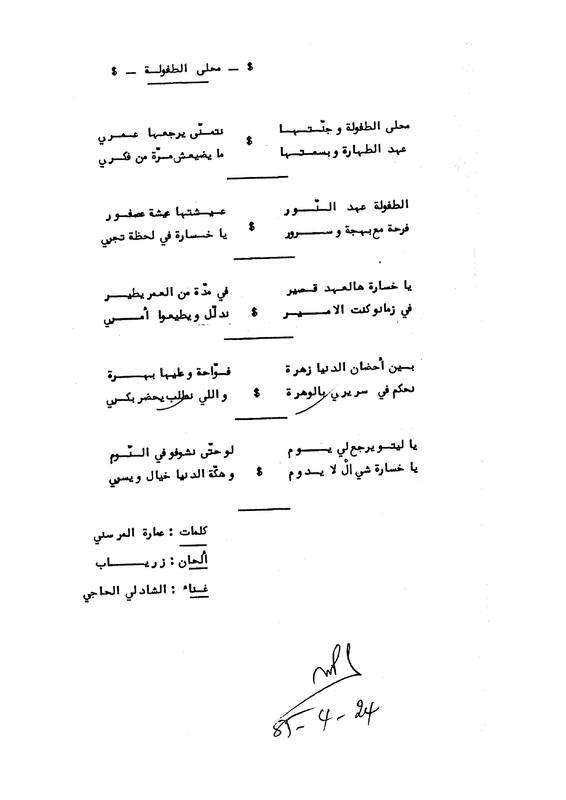 $ ـ محلى الطفولة ـ $
محلى الطفولة و جنّتها نتمنّى يرجعها عمري
$
عهد الطهارة و بسمتها ما يضيعش مرّة من فكري
الطفولة عهد النّور عيشتها عيشة عصفور
$
فرحة مع بهجة و سرور يا خسارة في لحظة تجري
يا خسارة هالعهد قصير في مدّة من العمر يطير
في زمانو كنت الامير $ ندلّل و يطيعوا أمري
بين أحضان الدنيا زهرة فوّاحة و عليها بهرة
نحكم في سريري بالوهرة $ و اللي نطلب يحضر بكري
يا ليتو يرجع لي يوم لو حتّى نشوفو في النّوم
يا خسارة شي الْ لا يدوم $ و هكّة الدنيا خيال ويسري
كلمات : عمارة المرسني
ألحان : زرياب
غناء : الشاذلي الحاجي
85 - 4 - 24